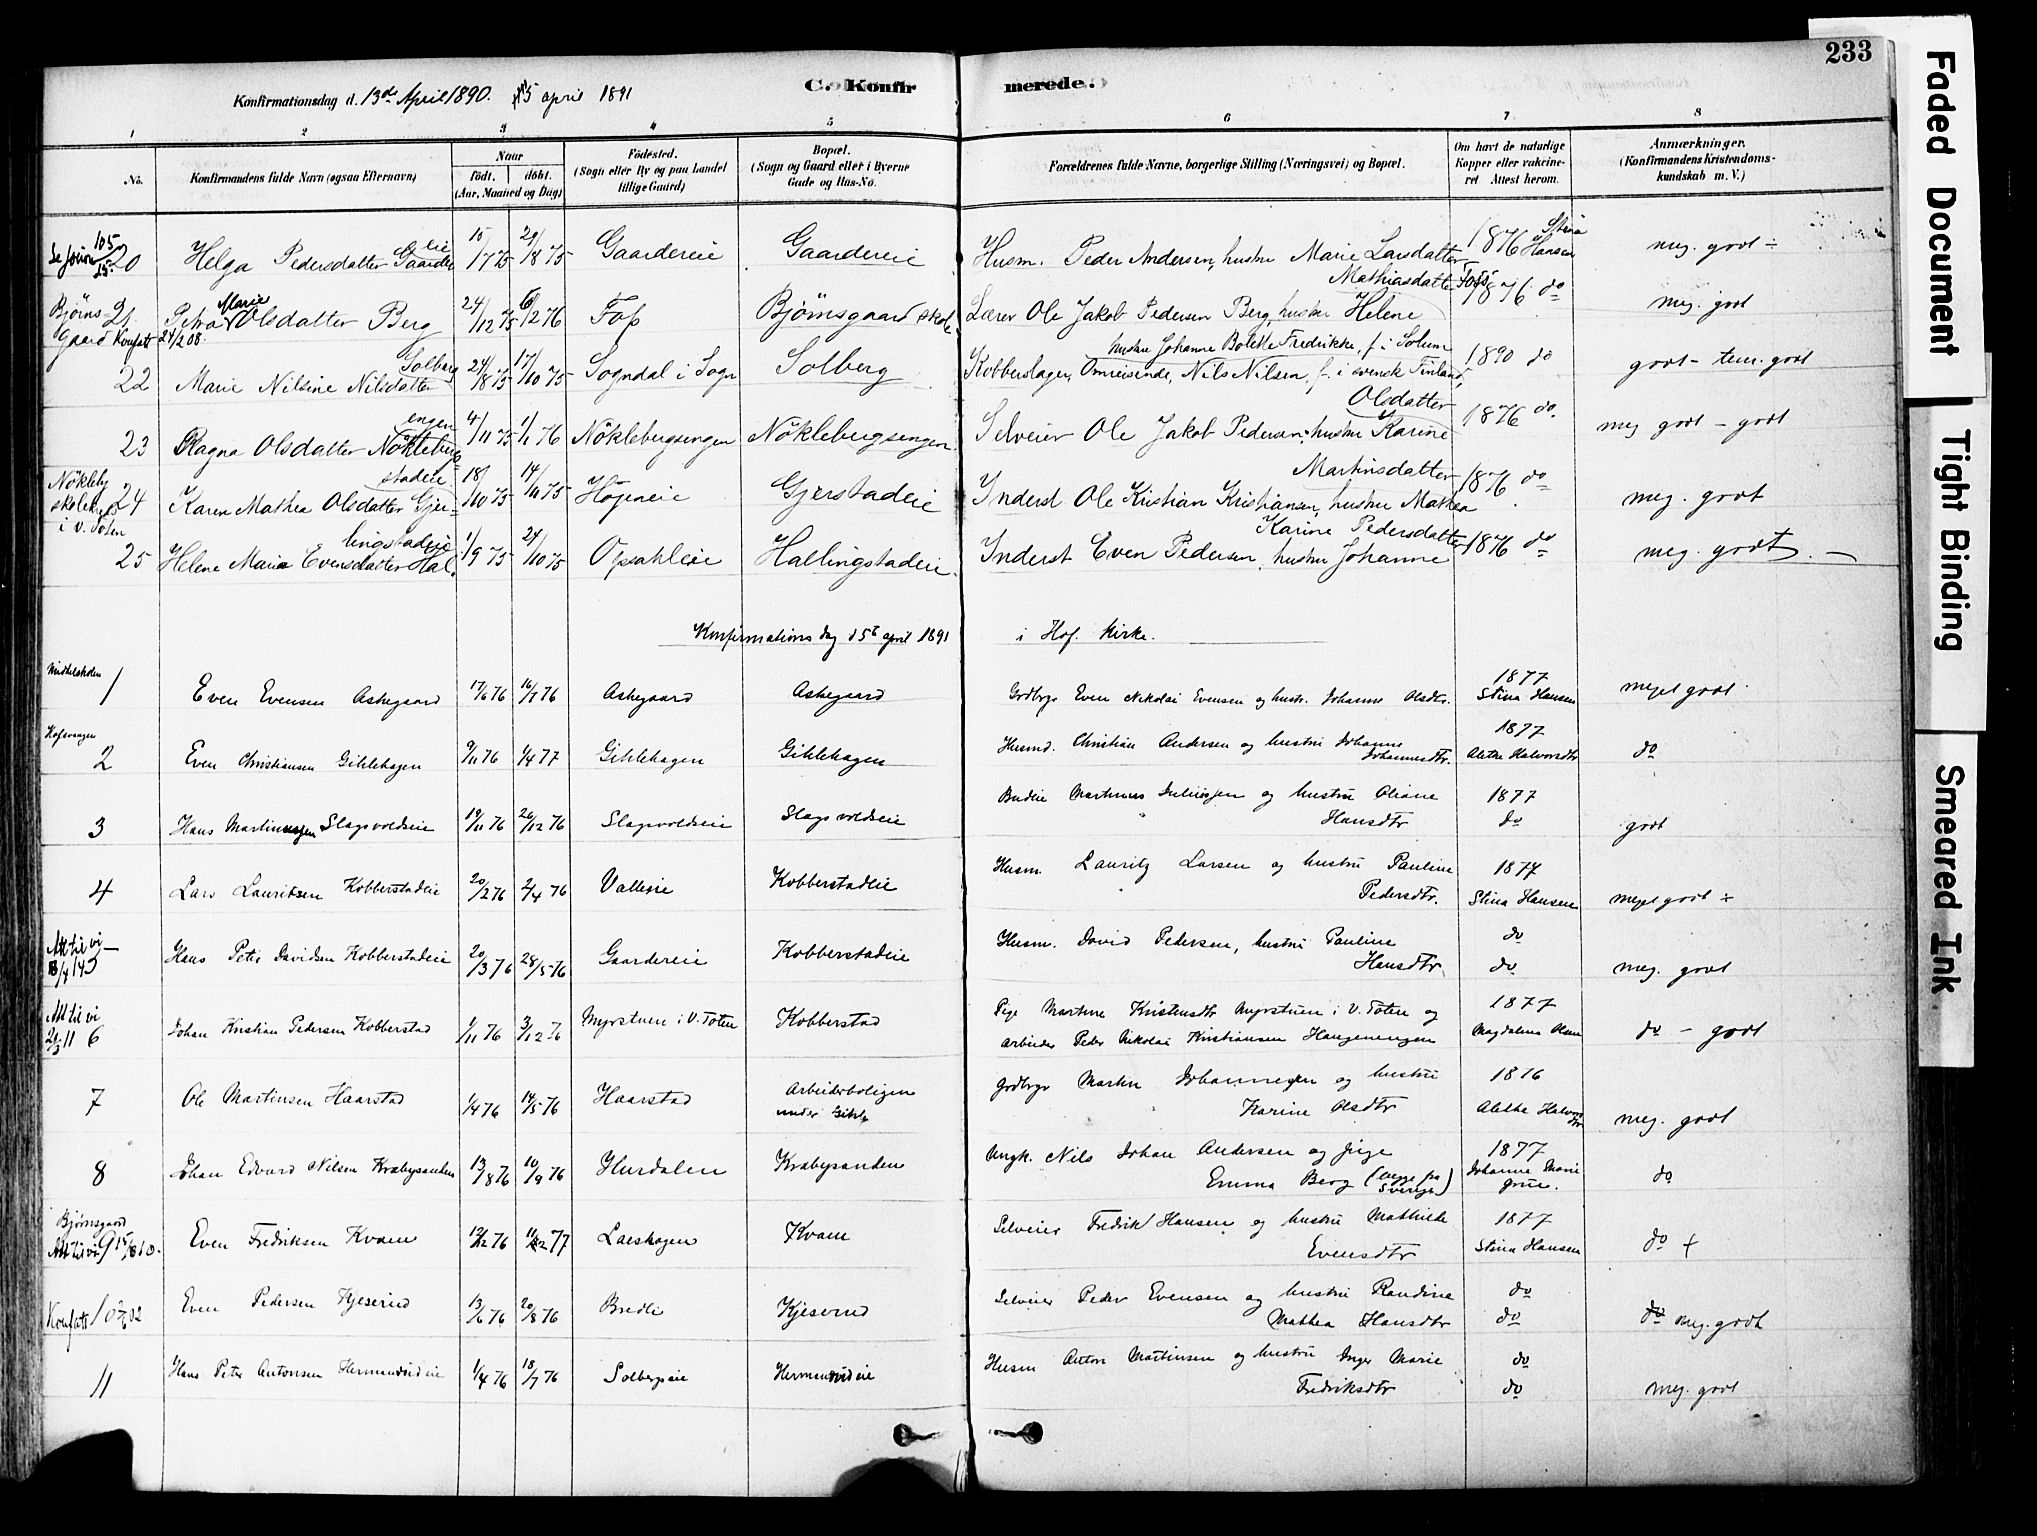 233
Konfirmationsdag d. 13de April 1890. 5 april 1891
C. Konfirmerede.
1 2 3 4 5 6 7 8
No. Konfirmandens fulde Navn (ogsaa Efternavn) Naar født. døbt. (Aar, Maaned og Dag) Fødested. (Sogn eller By og paa Landet tillige Gaard) Bopæl. (Sogn og Gaard eller i Byerne Gade og Hus-No. Forældrenes fulde Navne, borgerlige Stilling (Næringsvei) og Bopæl. Om havt de naturlige Kopper eller vakcineret. Attest herom. Anmærkninger. (Konfirmandens Kristendomskundskab m. V.)
20 Helga Pedersdatter Gaardereie 15/7 75 20/8 75 Gaardereie Gaardereie Husm. Peder Andersen, hustru Marie Larsdatter 1876 Stina Hansen meg. godt ÷
Bjørnsgaard 21 Petra Marie Olsdatter Berg 24/12 75 6/2 76 Foss Bjørnsgaard skole Lærer Ole Jakob Pedersen Berg, hustru Helene Mathiasdatter Foss 1876 do meg. godt
Konfatt 24/2 08.
22 Marie Nilsine Nilsdatter Solberg 24/8 75 17/10 75 Sogndal i Sogn Solberg Kobberslager, Omreisende, Nils Nilsen, f. i svensk Finland, hustru Johanne Bolette Fredrikke, f. i Solum 1890 do godt - tem. godt
23 Ragna Olsdatter Nøklebergengen 4/11 75 1/1 76 Nøklebergsengen Nøklebergsengen Selveier Ole Jakob Pedersen, hustru Karine Olsdatter 1876 do meg godt - godt
Nøkleby skolekreds i V. Toten 24 Karen Mathea Olsdatter Gjerstadeie 18/10 75 14/11 75 Høieneie Gjerstadeie Inderst Ole Kristian Kristiansen, hustru Mathea Martinsdatter 1876 do meg. godt
25 Helene Maria Evensdatter Hallingstadeie 1/9 75 24/10 75 Opsahleie Hallingstadeie Inderst Even Pedersen, hustru Johanne Karine Pedersdatter 1876 do meg. godt. -
Konfirmationsdag d 5te april 1891 i Hof Kirke.
1 Even Evensen Askegaard 17/6 76 16/7 76 Askegaard Askegaard Grdbrgr Even Nikolai Evensen og hustr. Johanne Olsdtr. 1877 Stina Hansen meget godt
2 Even Christiansen Gihlehagen 9/11 76 1/4 77 Gihlehagen Gihlehagen Husmd. Christian Andersen og hustru Johanne Johannesdtr. 1877 Alethe Halvorsdtr do
3 Hans Martinussen Slagsvoldseie 19/11 76 26/12 76 Slagsvoldseie Slagsvoldseie Martinus Juliussen og hustru Oliane Hansdtr 1877 do godt
4 Lars Lauritsen Kobberstadeie 20/2 76 2/4 76 Valleeie Kobberstadeie Husm. Lauritz Larsen og hustru Pauline Pedersdtr. 1877 Stina Hansen meget godt +
5 Hans Peter Davidsen Kobberstadeie 20/3 76 28/5 76 Gaardereie Kobberstadeie Husm. David Pedersen, hustru Pauline Hansdtr do do meg. godt
6 Johan Kristian Pedersen Kobberstad 1/11 76 3/12 76 Myrstuen i V. Toten Kobberstad Pige Martine Kristensdtr Myrstuen i V. Toten og arbeider Peder Nikolai Kristiansen Haugenengen 1877 Magdalena Olsen do - godt
7 Ole Martinsen Haarstad 1/4 76 14/5 76 Haarstad Arbeiderboligen under Gihle Grdbrgr Martin Johannesen og hustru Karine Olsdtr 1816 Alethe Halvorsdtr meg. godt
8 Johan Edvard Nilsen Krabysanden 13/8 76 10/9 76 Hurdalen Krabysanden Ungk. Nils Johan Andersen og pige Emma Berg (begge fra Sverige) 1877 Johanne Marie Grue. do
Bjørnsgaard 9 Even Fredriksen Kvam 12/12 76 11/2 77 Larshagen Kvam Selveier Fredrik Hansen og hustru Mathilde Evensdtr 1877 Stina Hansen do +
Konfatt 10 Even Pedersen Kjeserud 13/6 76 20/8 76 Bredli Kjeserud Selveier Peder Evensen og hustru Randine Mathea Hansdtr do do do meg. godt
11 Hans Peter Antonsen Hermunrudeie 1/4 76 18/7 76 Solbergseie Hermunrudeie Husm Anton Martinsen og hustru Inger Marie Fredriksdtr do do meg. godt
Faded Document
Tight Binding
Smeared Ink